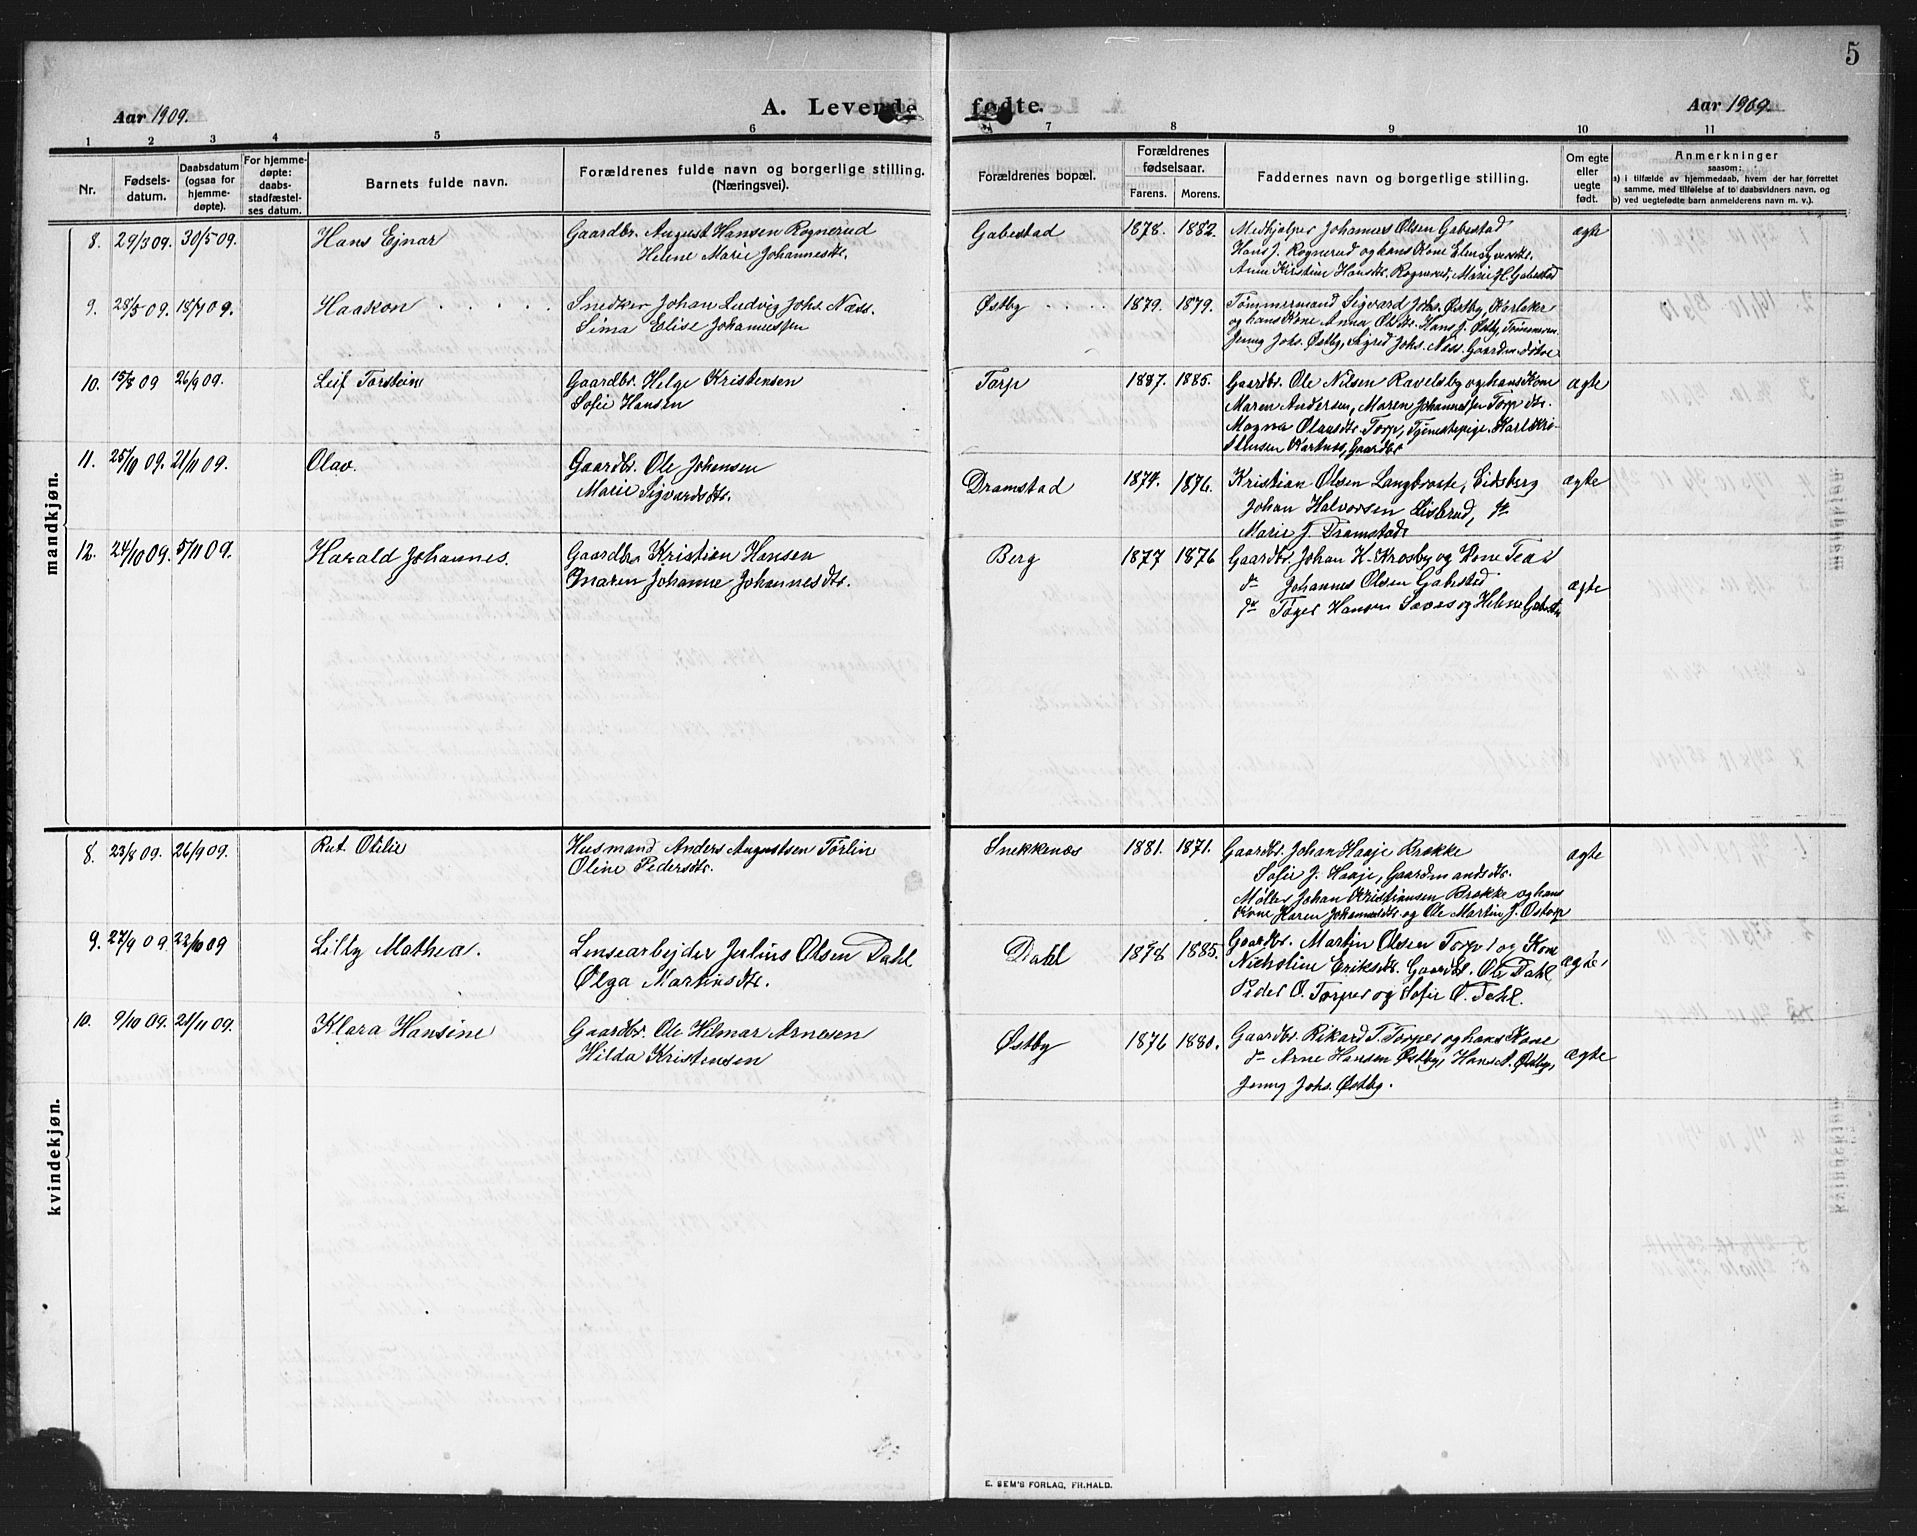 5
Aar 1909.
A. Levende fødte.
Aar 1909.
1 2 3 4 5 6 7 8 9 10 11
Nr.
Fødsels-
datum.
Daabsdatum
(ogsaa for
hjemme-
døpte).
For hjemme-
døpte:
daabs-
stadfæstel-
ses datum.
Barnets fulde navn.
Forældrenes fulde navn og borgerlige stilling.
(Næringsvei).
Forældrenes bopæl.
Forældrenes
fødselsaar.
Farens. Morens.
Faddernes navn og borgerlige stilling.
Om egte
eller
uegte
født.
Anmerkninger
saasom:
a) i tilfælde av hjemmedaab, hvem der har forrettet
samme, med tilføielse af to daabsvidners navn, og
b) ved uegtefødte barn anmelderens navn m. v.).
mandkjøn.
8. 29/3 09. 30/5 09. Hans Ejnar Gaardbr. August Hansen Rognerud Gabestad 1878. 1882. Medhjelper Johannes Olsen Gabestad ægte
Helene Marie Johannesdtr. Hans J. Rognerud og hans Kone Elen
Anne Kirstine Hansdtr. Rognerud, Marie H. Gabestad
9. 28/5 09. 18/7 09. Haakon Snedker Johan Ludvig Johs. Næss. Østby 1879. 1879. Tømmermand Sigvard Johs. Østby,
Sima Elise Johannessen og hans Kone Anna Olsdtr. Hans J. Østby,
Jenny Johs. Østby, Sigrid Johs. Næss.
10. 15/8 09 26/9 09. Leif Torstein Gaardbr. Helge Kristensen Torp 1887. 1885. Gaardbr. Ole Nilsen Ravelsby og hans Kone ægte
Sofie Hansen Maren Andersen, Maren Johannessen Torp
Magna Olausdtr. Torp, Tjenestepige. Karl Kri-
stensen Gaardbr
11. 25/10 09. 21/11 09. Olav. Gaardbr. Ole Johansen Dramstad 1874. 1876. Kristian Olsen Langbraate, Eidsberg ægte
Marie Sigvardsdtr. Johan Halvorsen
Marie J. Dramstad
12. 24/10 09. 5/11 09. Harald Johannes. Gaardbr Kristian Hansen Berg 1877 1876 Gaardbr. Johan H. Krosby og Kone Thea ægte
Maren Johanne Johannesdtr. do Johannes Olsen Gabestad
do Tøger Hansen Saxes og Helene
kvindekjøn.
8. 23/8 09. 26/9 09. Rut Otilie Husmand Anders Augustsen Torlin Snekkenæs 1881. 1871. Gaardbr. Johan Haaje Krokke ægte
Oline Pedersdtr. Sofie J. Haaje, Gaardmandsdtr.
Møller Johan Kristiansen Brokke og hans
Kone Karen Johannesdtr og Ole Martin J. Østorp
9. 27/9 09. 22/10 09 Lilly Mathea. Linsearbejder Julius Olsen Dahl Dahl 1878 1885. Gaardbr. Martin Olsen Torp og Kone ægte,
Olga Martinsdtr. Nicholine Eriksdtr. Gaardbr. Ole Dahl
Peder O. Torper og Sofie O. Dahl.
10. 9/10 09. 21/11 09. Klara Hansine Gaardbr. Ole Hilmar Arnesen Østby 1876 1880. Gaardbr. Rikard T. Torper og hans Kone ægte
Hilda Kristensen do Arne Hansen Østby, Hans A. Østby,
Jenny Johs. Østby.
E. SEM'S FORLAG, FR.HALD.